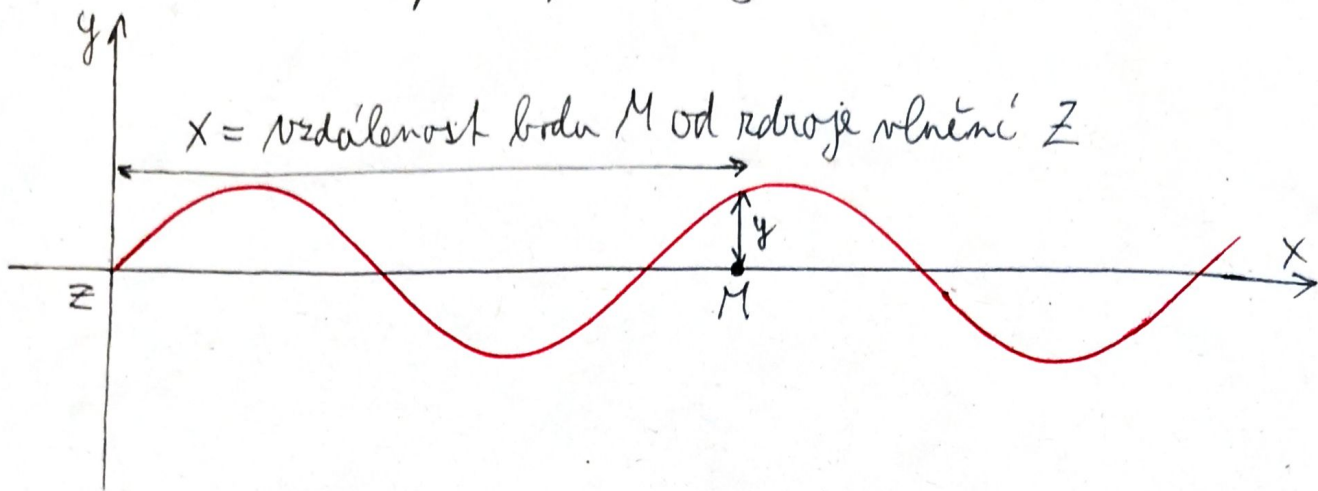 y
x = vzdálenost bodu M od zdroje vlnění Z
y
x
Z
M